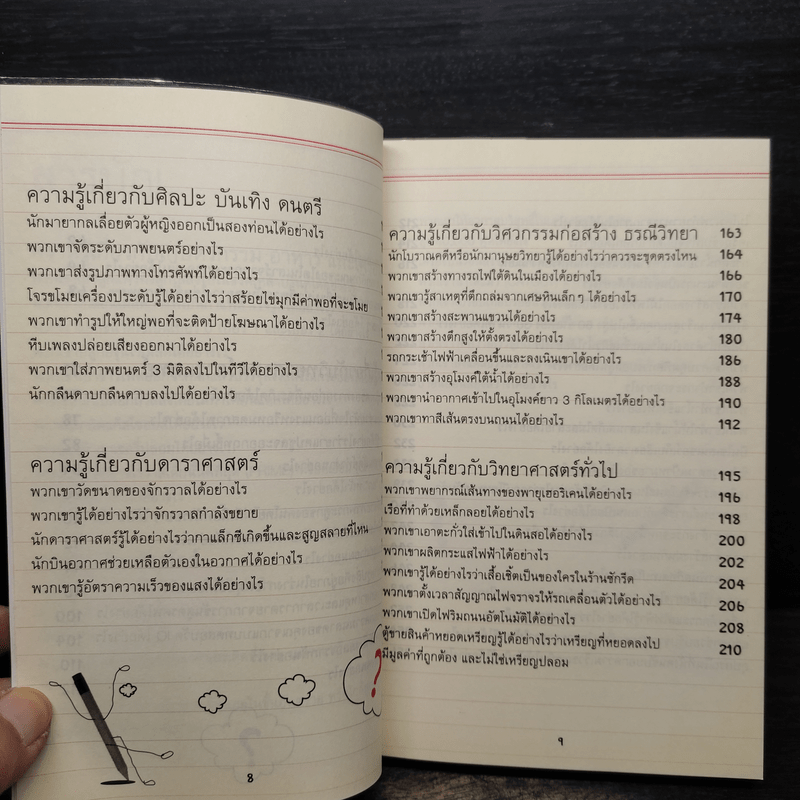 ความรู้เกี่ยวกับศิลปะ บันเทิง ดนตรี
นักมายากลเลื่อยตัวผู้หญิงออกเป็นสองท่อนได้อย่างไร
พวกเขาจัดระดับภาพยนตร์อย่างไร
พวกเขาส่งรูปภาพทางโทรศัพท์ได้อย่างไร
โจรขโมยเครื่องประดับรู้ได้อย่างไรว่าสร้อยไข่มุกมีค่าพอที่จะขโมย
พวกเขาทำรูปให้ใหญ่พอที่จะติดป้ายโฆษณาได้อย่างไร
หีบเพลงปล่อยเสียงออกมาได้อย่างไร
พวกเขาใส่ภาพยนตร์ 3 มิติลงไปในทีวีได้อย่างไร
นักกลืนดาบกลืนดาบลงไปได้อย่างไร
ความรู้เกี่ยวกับดาราศาสตร์
พวกเขาวัดขนาดของจักรวาลได้อย่างไร
พวกเขารู้ได้อย่างไรว่าจักรวาลกำลังขยาย
นักดาราศาสตร์รู้ได้อย่างไรว่ากาแล็กซีเกิดขึ้นและสูญสลายที่ไหน
นักบินอวกาศช่วยเหลือตัวเองในอวกาศได้อย่างไร
พวกเขารู้อัตราความเร็วของแสงได้อย่างไร
?
8
ความรู้เกี่ยวกับวิศวกรรมก่อสร้าง ธรณีวิทยา 163
นักโบราณคดีหรือนักมานุษยวิทยารู้ได้อย่างไรว่าควรจะขุดตรงไหน 164
พวกเขาสร้างทางรถไฟใต้ดินในเมืองได้อย่างไร 166
พวกเขารู้สาเหตุที่ตึกถล่มจากเศษหินเล็กๆ ได้อย่างไร 170
พวกเขาสร้างสะพานแขวนได้อย่างไร 174
พวกเขาสร้างตึกสูงให้ตั้งตรงได้อย่างไร 180
รถกระเช้าไฟฟ้าเคลื่อนขึ้นและลงเนินเขาได้อย่างไร 186
พวกเขาสร้างอุโมงค์ใต้น้ำได้อย่างไร 188
พวกเขานำอากาศเข้าไปในอุโมงค์ยาว 3 กิโลเมตรได้อย่างไร 190
พวกเขาทาสีเส้นตรงบนถนนได้อย่างไร 192
ความรู้เกี่ยวกับวิทยาศาสตร์ทั่วไป 195
พวกเขาพยากรณ์เส้นทางของพายุเฮอริเคนได้อย่างไร 196
เรือที่ทำด้วยเหล็กลอยได้อย่างไร 198
พวกเขาเอาตะกั่วใส่เข้าไปในดินสอได้อย่างไร 200
พวกเขาผลิตกระแสไฟฟ้าได้อย่างไร 202
พวกเขารู้ได้อย่างไรว่าเสื้อเชิ้ตเป็นของใครในร้านซักรีด 204
พวกเขาตั้งเวลาสัญญาณไฟจราจรให้รถเคลื่อนตัวได้อย่างไร 206
พวกเขาเปิดไฟริมถนนอัตโนมัติได้อย่างไร 208
ตู้ขายสินค้าหยอดเหรียญรู้ได้อย่างไรว่าเหรียญที่หยอดลงไป 210
มีมูลค่าที่ถูกต้อง และไม่ใช่เหรียญปลอม
9